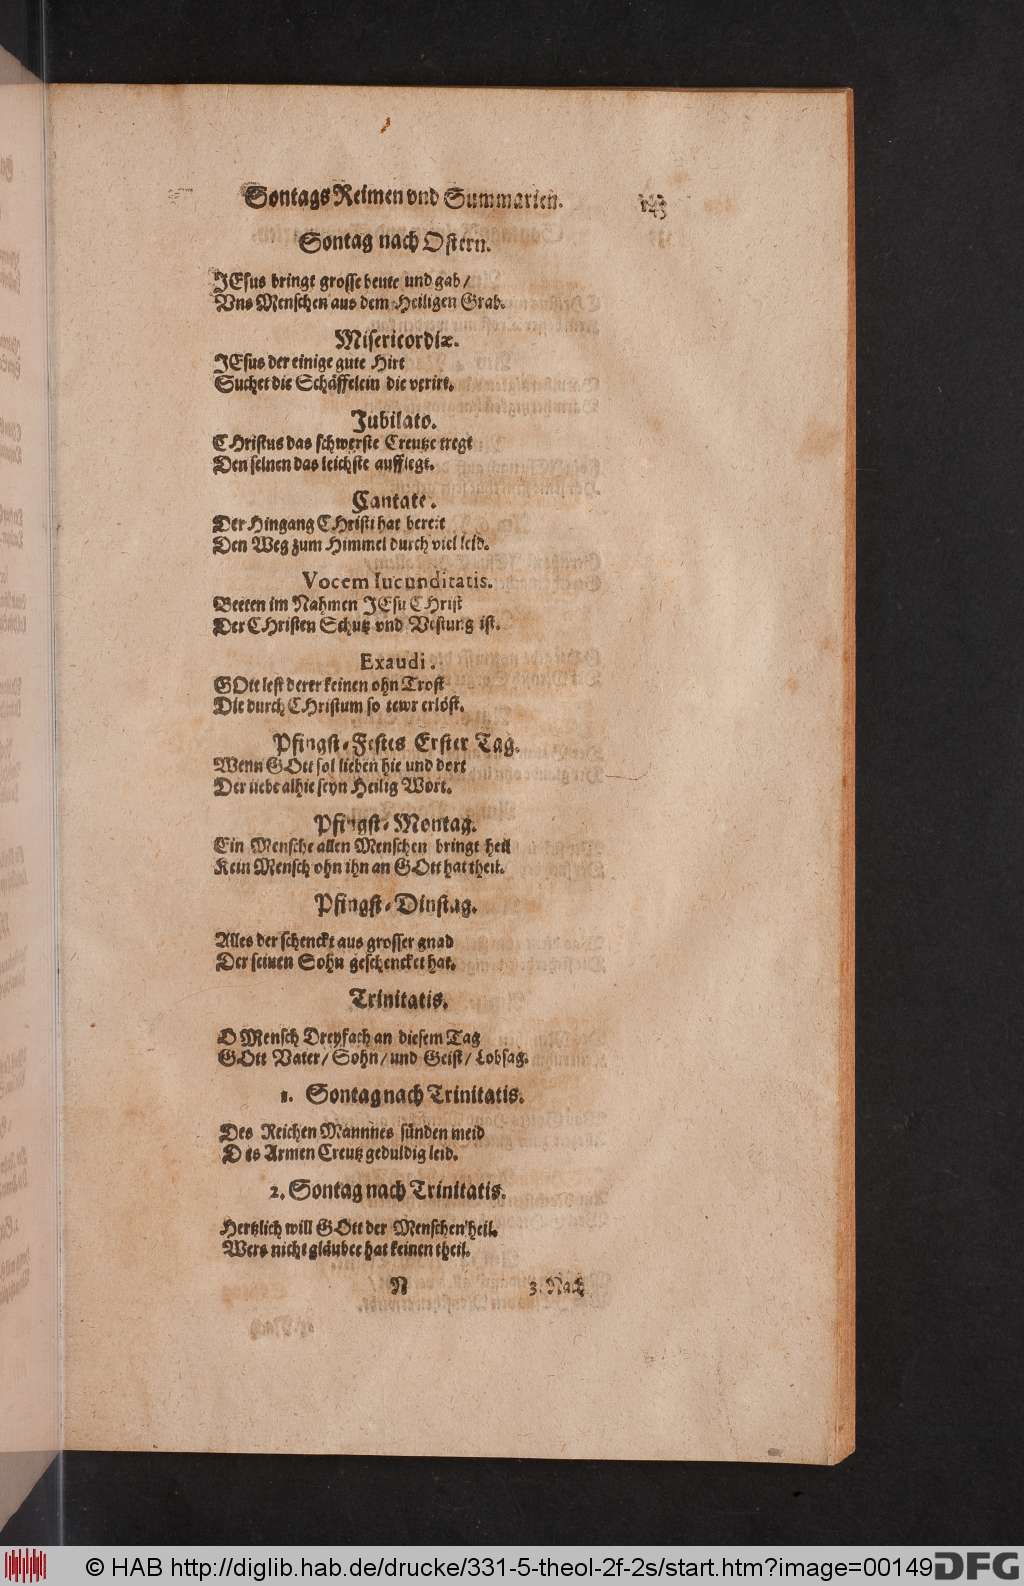 Sontags Reimen vnd Summarien.
Sontag nach Ostern.
JEsus bringt grosse beute und gab /
Vns Menschen aus dem Heiligen Grab.
Misericordiæ.
JEsus der einige gute Hirt
Suchet die Schäffelein die verirt.
Jubilato.
CHristus das schwerste Creutze tregt
Den seinen das leichste aufflegt.
Cantate.
Der Hingang CHristi hat bereit
Den Weg zum Himmel durch viel leid.
Vocem Iucunditatis.
Beeten im Nahmen JEsu CHrist
Der CHristen Schutz vnd Vestung ist.
Exaudi.
GOtt lest derer keinen ohn Trost
Die durch CHristum so tewr erlöst.
Pfingst-Festes Erster Tag.
Wenn GOtt sol lieben hie und dort
Der liebe alhie seyn Heilig Wort.
Pfingst-Montag.
Ein Mensche allen Menschen bringt heil
Kein Mensch ohn ihn an GOtt hat theil.
Pfingst-Dinstag.
Alles der schenckt aus grosser gnad
Der seinen Sohn geschencket hat.
Trinitatis.
O Mensch Dreyfach an diesem Tag
GOtt Vater/ Sohn/ und Geist/ Lobsag.
1. Sontag nach Trinitatis.
Des Reichen Mannnes sünden meid
Des Armen Creutz geduldig leid.
2. Sontag nach Trinitatis.
Hertzlich will GOtt der Menschen heil.
Wers nicht gläubet hat keinen theil.
N 3. Nach
© HAB http://diglib.hab.de/drucke/331-5-theol-2f-2s/start.htm?image=00149
DFG